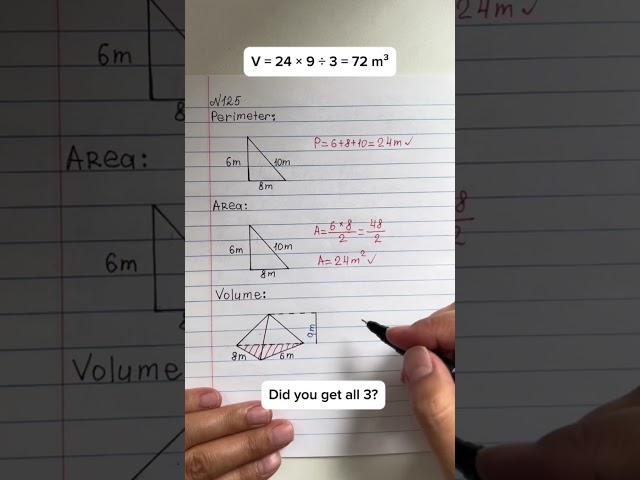 V = 24 × 9 ÷ 3 = 72 m³
N125
Perimeter:
6m
10m
8m
P=6+8+10=24m✓
Area:
6m
10m
8m
A=6*8/2=48/2
A=24m²✓
Volume:
9m
8m
6m
Did you get all 3?
6m
8
Area:
6m
Volume:
24m✓
8
2